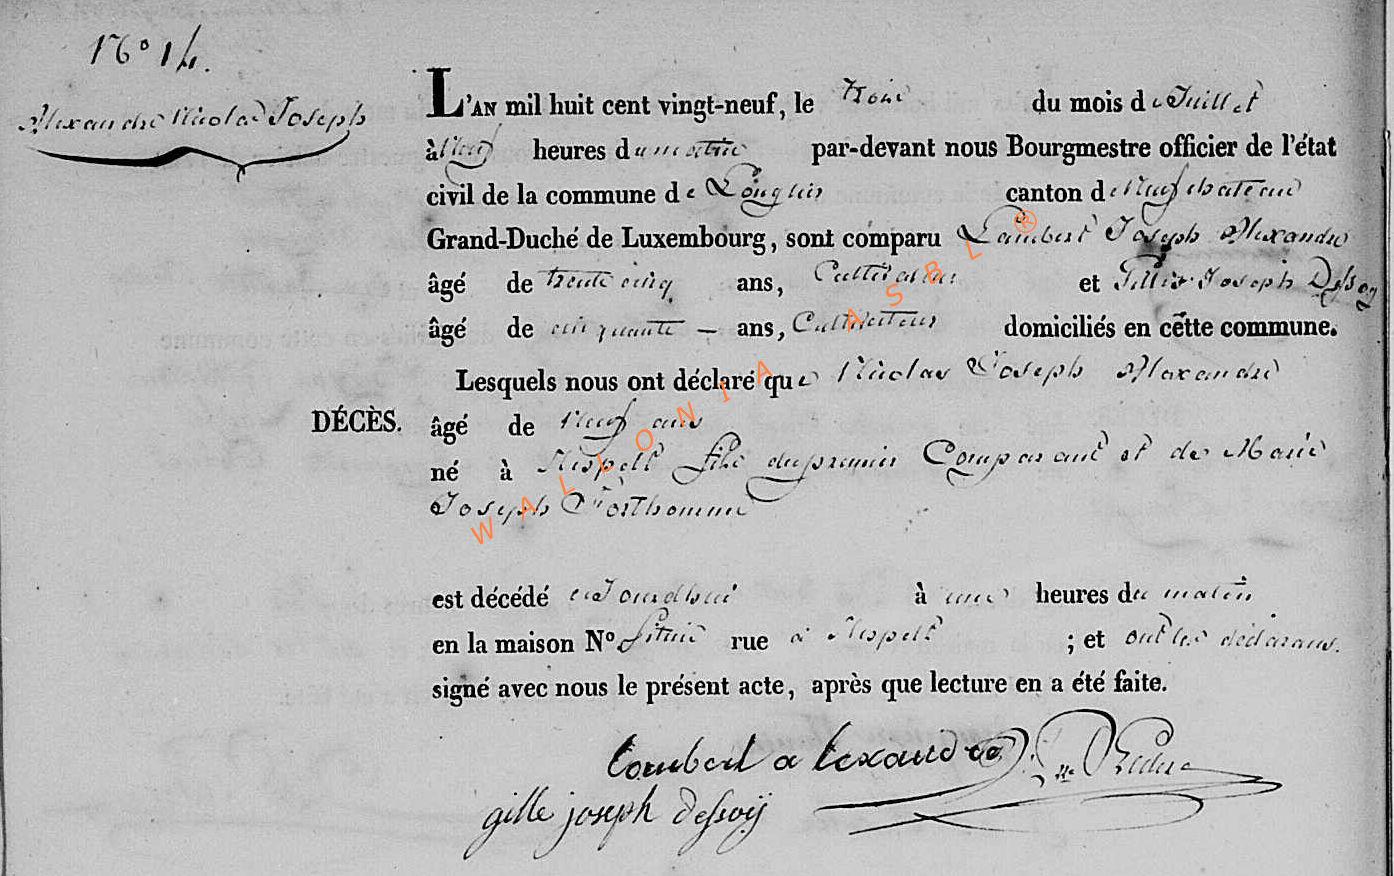 N° 14.
Alexandre Nicolas Joseph
L'AN mil huit cent vingt-neuf, le trois du mois de Juillet
à Neuf heures du matin par-devant nous Bourgmestre officier de l'état
civil de la commune de Longlier canton de Neufchateau
Grand-Duché de Luxembourg, sont comparu Lambert Joseph Alexandre
âgé de trente cinq ans, Cultivateur et Gilles Joseph Dessoy
âgé de cinquante — ans, Cultivateur domiciliés en cette commune.
Lesquels nous ont déclaré que Nicolas Joseph Alexandre
DÉCÈS. âgé de Neuf ans
né à Respelt fils du premier Comparant et de Marie
Joseph Forthomme
est décédé cejourdhui à une heures du matin
en la maison N° située rue à Respelt ; et ont les déclarans.
signé avec nous le présent acte, après que lecture en a été faite.
Lambert alexandre
gille joseph dessoij
WALLONIA ASBL ®